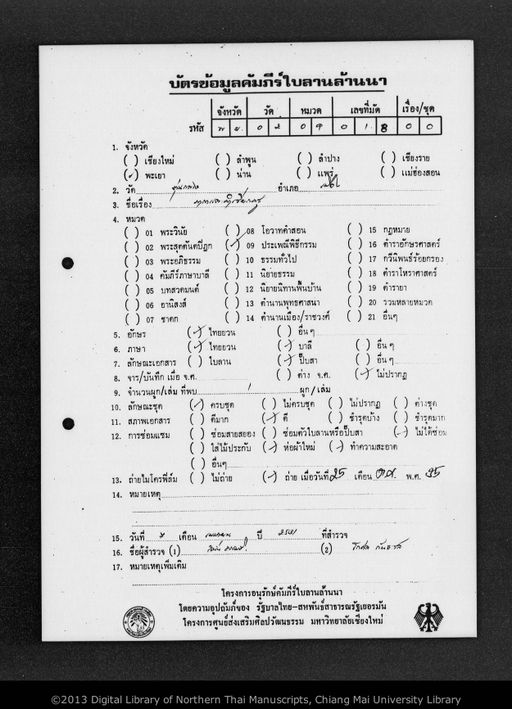 บัตรข้อมูลคัมภีร์ใบลานล้านนา
จังหวัด วัด หมวด เลขที่มัด เรื่อง/ชุด
รหัส พ ย. ๐ ๒ ๐ ๙ ๐ 1. 8 ๐ ๐
1. จังหวัด
( ) เชียงใหม่ ( ) ลำพูน ( ) ลำปาง ( ) เชียงราย
(✓) พะเยา ( ) น่าน ( ) แพร่ ( ) แม่ฮ่องสอน
2. วัด อำเภอ
3. ชื่อเรื่อง
4. หมวด
( ) 01 พระวินัย ( ) 08 โอวาทคำสอน ( ) 15 กฎหมาย
( ) 02 พระสุตตันตปิฎก (✓) 09 ประเพณีพิธีกรรม ( ) 16 ตำราอักษรศาสตร์
( ) 03 พระอภิธรรม ( ) 10 ธรรมทั่วไป ( ) 17 กวีนิพนธ์ร้อยกรอง
( ) 04 คัมภีร์ภาษาบาลี ( ) 11 นิยายธรรม ( ) 18 ตำราโหราศาสตร์
( ) 05 บทสวดมนต์ ( ) 12 นิยายนิทานพื้นบ้าน ( ) 19 ตำรายา
( ) 06 อานิสงส์ ( ) 13 ตำนานพุทธศาสนา ( ) 20 รวมหลายหมวด
( ) 07 ชาดก ( ) 14 ตำนานเมือง/ราชวงศ์ ( ) 21 อื่นๆ
5. อักษร (✓) ไทยยวน ( ) อื่นๆ
6. ภาษา (✓) ไทยยวน (✓) บาลี ( ) อื่นๆ
7. ลักษณะเอกสาร ( ) ใบลาน (✓) ปั๊บสา ( ) อื่นๆ
8. จาร/บันทึก เมื่อ จ.ศ. ( ) ค่าง จ.ศ. (✓) ไม่ปรากฏ
9. จำนวนผูก/เล่ม ที่พบ 1 ผูก/เล่ม
10. ลักษณะชุด (✓) ครบชุด ( ) ไม่ครบชุด ( ) ไม่ปรากฏ ( ) ต่างชุด
11. สภาพเอกสาร ( ) ดีมาก (✓) ดี ( ) ชำรุดบ้าง ( ) ชำรุดมาก
12. การซ่อมแซม ( ) ซ่อมสายสยอง ( ) ซ่อมตัวใบลานหรือปั๊บสา (✓) ไม่ได้ซ่อม
( ) ใส่ไม้ประกับ (✓) ห่อผ้าใหม่ (✓) ทำความสะอาด
( ) อื่นๆ
13. ถ่ายไมโครฟิล์ม ( ) ไม่ถ่าย (✓) ถ่าย เมื่อวันที่ 25 เดือน พ.ศ. 35
14. หมายเหตุ
15. วันที่ เดือน เมษายน ปี ที่สำรวจ
16. ชื่อผู้สำรวจ (1) (2)
17. หมายเหตุเพิ่มเติม
โครงการอนุรักษ์คัมภีร์ใบลานล้านนา
โดยความอุปถัมภ์ของ รัฐบาลไทย-สหพันธ์สาธารณรัฐเยอรมัน
โครงการศูนย์ส่งเสริมศิลปวัฒนธรรม มหาวิทยาลัยเชียงใหม่
©2013 Digital Library of Northern Thai Manuscripts, Chiang Mai University Library